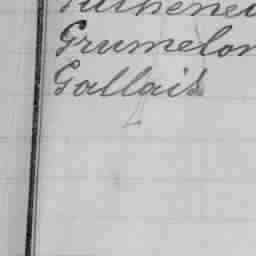 Grumelon
Gallais